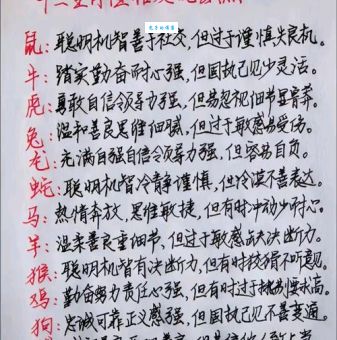 十二生肖
鼠:聪明机智善于社交,但过于谨慎失良机。
牛:踏实勤奋耐心强,但固执己见少灵活。
虎:勇敢自信领导力强,但易忽视细节显鲁莽。
兔:温和善良思维细腻,但过于敏感易受伤。
龙:充满自强自信领导力强,但容易自负。
蛇:聪明机智冷静谨慎,但冷漠不善表达。
马:热情奔放,思维敏捷,但有时冲动少耐心。
羊:温柔善良重细节,但过于敏感缺决断力。
猴:聪明机智有决断力,但有时狡猾不听意见。
鸡:勤奋努力责任心强,但有时过于挑剔要求高。
狗:忠诚可靠正义感强,但固执己见不善变通。